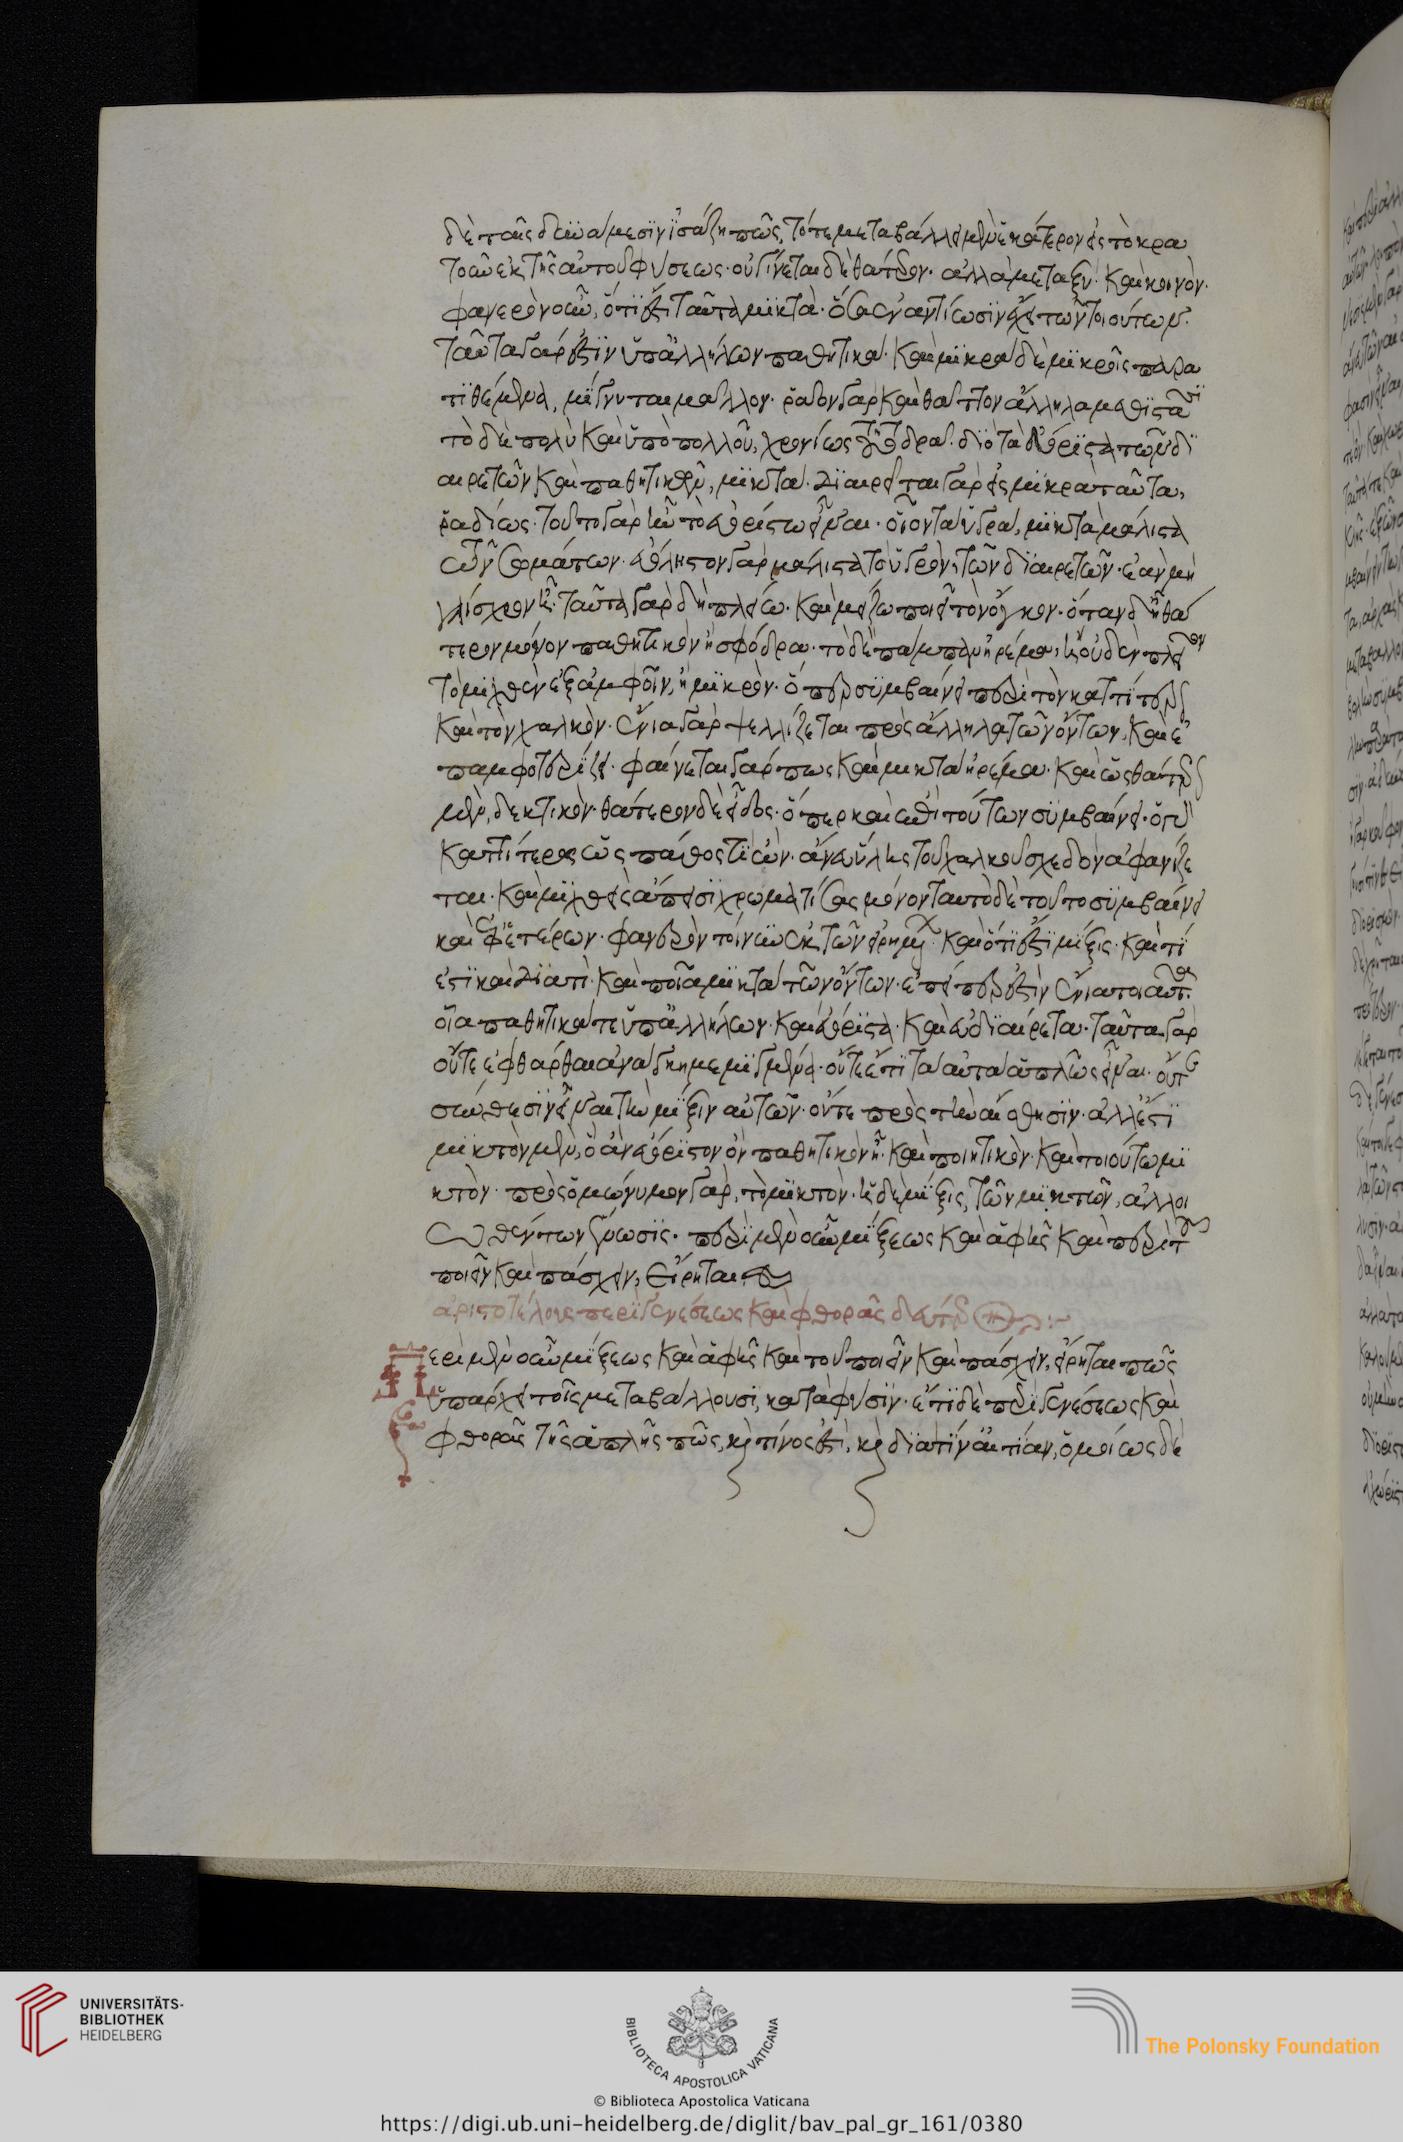 δὲ ταῖς δυνάμεσιν ἰσάζη πως, τότε μεταβάλλει μὲν ἑκάτερον εἰς τὸ κρα
τοῦν ἐκ τῆς αὐτοῦ φύσεως· οὐ γίνεται δὲ θάτερον· ἀλλὰ μεταξὺ καὶ κοινὸν·
φανερὸν οὖν, ὅτι ἐστὶ ταῦτα μικτὰ· ὅσα ἐναντίωσιν ἔχει τῶν ποιούντων·
ταῦτα γάρ ἐστιν ὑπ' ἀλλήλων παθητικά· καὶ μικρὰ δὲ μικροῖς παρα
τιθέμενα, μίγνυται μᾶλλον· ῥᾷον γὰρ καὶ θᾶττον ἄλληλα μεθίστησι
τὸ δὲ πολὺ καὶ ὑπὸ πολλοῦ, χρονίως τοῦτο δρᾷ· διὸ τὰ εὐόριστα τῶν δι
αιρετῶν καὶ παθητικῶν, μικτά· διαιρεῖται γὰρ εἰς μικρὰ ταῦτα,
ῥᾳδίως· τοῦτο γὰρ ἦν τὸ εὐορίστῳ εἶναι· οἷον τὰ ὑγρὰ, μικτὰ μάλιστα
τῶν σωμάτων· εὐόριστον γὰρ μάλιστα τὸ ὑγρὸν, τῶν διαιρετῶν· ἐὰν μὴ
γλίσχρον ᾖ· ταῦτα γὰρ δὴ πλείω καὶ μείζω ποιεῖ τὸν ὄγκον· ὅταν δ' ᾖ θά
τερον μόνον παθητικὸν ἢ σφόδρα· τὸ δὲ πάμπαν ἠρέμα, ἢ οὐδὲν πλεῖον
τὸ μιχθὲν ἐξ ἀμφοῖν, ἢ μικρὸν· ὅπερ συμβαίνει περὶ τὸν καττίτερον
καὶ τὸν χαλκὸν· ἔνια γὰρ ψελλίζεται πρὸς ἄλληλα τῶν ὄντων, καὶ ἐ
παμφοτερίζει· φαίνεται γάρ πως καὶ μικτὰ ἠρέμα· καὶ ὡς θάτερον
μὲν, δεκτικὸν· θάτερον δὲ εἶδος· ὅπερ καὶ ἐπὶ τούτων συμβαίνει· ὁ γὰρ
καττίτερος ὡς πάθος τι ὢν· ἄνευ ὕλης τοῦ χαλκοῦ σχεδὸν ἀφανίζε
ται· καὶ μιχθεὶς ἄπεισι χρωματίσας μόνον ταυτὸ δὲ τοῦτο συμβαίνει
καὶ ἐφ' ἑτέρων· φανερὸν τοίνυν ἐκ τῶν εἰρημένων· καὶ ὅτι ἐστὶ μίξις· καὶ τί
ἐστι καὶ διατί· καὶ ποῖα μικτὰ τῶν ὄντων· ἐπείπερ ἐστὶν ἔνια τοιαῦτα
οἷα παθητικά τε ὑπ' ἀλλήλων· καὶ εὐόριστα· καὶ εὐδιαίρετα· ταῦτα γὰρ
οὔτε ἐφθάρθαι ἀνάγκη μεμιγμένα· οὔτε ἔτι τὰ αὐτὰ ἁπλῶς εἶναι· οὔτε
σύνθεσιν εἶναι τὴν μίξιν αὐτῶν· οὔτε πρὸς τὴν αἴσθησιν· ἀλλ' ἔστι
μικτὸν μὲν, ὃ ἂν εὐόριστον ὂν παθητικὸν ᾖ· καὶ ποιητικὸν· καὶ τοιούτῳ μι
κτὸν· πρὸς ὁμώνυμον γὰρ, τὸ μικτὸν· ἡ δὲ μίξις, τῶν μικτῶν, ἀλλοι
ωθέντων ἕνωσις· περὶ μὲν οὖν μίξεως καὶ ἁφῆς καὶ περὶ τοῦ
ποιεῖν καὶ πάσχειν, εἴρηται
ἀριστοτέλους περὶ γενέσεως καὶ φθορᾶς δευτέρον
Περὶ μὲν οὖν μίξεως καὶ ἁφῆς καὶ τοῦ ποιεῖν καὶ πάσχειν, εἴρηται πῶς
ὑπάρχει τοῖς μεταβάλλουσι, κατὰ φύσιν· ἔτι δὲ περὶ γενέσεως καὶ
φθορᾶς τῆς ἁπλῆς πῶς, κὶ τίνος ἐστὶ, κὶ διὰ τίν' αἰτίαν, ὁμοίως δὲ
UNIVERSITÄTS-
BIBLIOTHEK
HEIDELBERG
BIBLIOTECA APOSTOLICA VATICANA
The Polonsky Foundation
© Biblioteca Apostolica Vaticana
https://digi.ub.uni-heidelberg.de/diglit/bav_pal_gr_161/0380